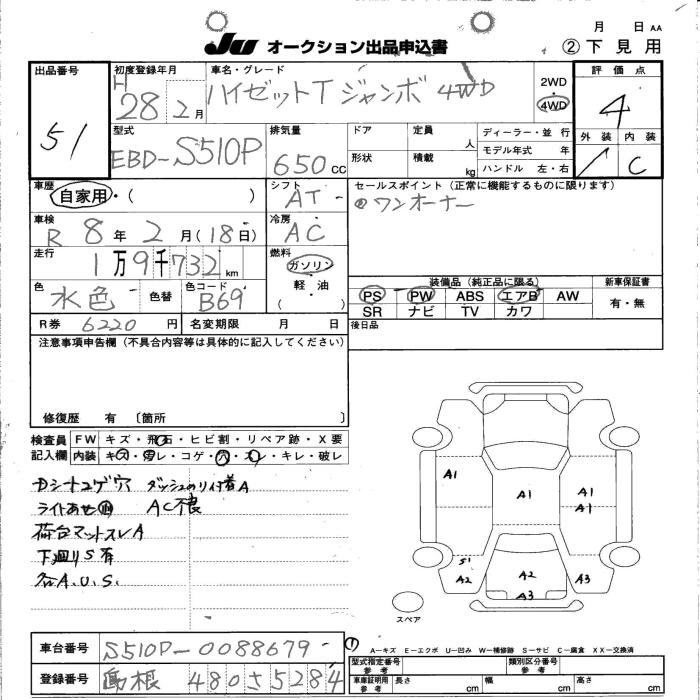 月 日 AA
JU オークション出品申込書
② 下見用
出品番号
51
初度登録年月
H 28 2月
車名・グレード
ハイゼットT ジャンボ 4WD
2WD
4WD
評価点
4
外装 内装
C
型式
EBD-S510P
排気量
650cc
ドア 定員 人
形状 積載 kg
ディーラー・並行
モデル年式 年
ハンドル 左・右
車歴
自家用・( )
シフト
AT
セールスポイント(正常に機能するものに限ります)
ワンオーナー
車検
R 8年 2月(18日)
冷房
AC
走行
1万9千732km
燃料
ガソリン
軽・油
( )
色
水色
色替
色コード
B69
装備品(純正品に限る)
PS PW ABS エアB AW
SR ナビ TV カワ
新車保証書
有・無
R券 6220円
名変期限 月 日
後日品
注意事項申告欄(不具合内容等は具体的に記入してください)
修復歴 有 〔箇所 〕
検査員記入欄
FW キズ・飛石・ヒビ割・リペア跡・X要
内装 キズ・汚レ・コゲ・穴・スレ・キレ・破レ
ダッシュのり付着A
AC不良
荷台マットスレA
下廻りS有
各A.U.S.
A1
A1
A1
A1
S1
A2
A2
A3
A3
スペア
車台番号 S510P-0088679
登録番号 島根 480 を 5284
①
A−キズ E−エクボ U−凹み W−補修跡 S−サビ C−腐食 XX−交換済
型式指定番号 参考
類別区分番号 参考
車庫証明用 参考
長さ cm 幅 cm 高さ cm